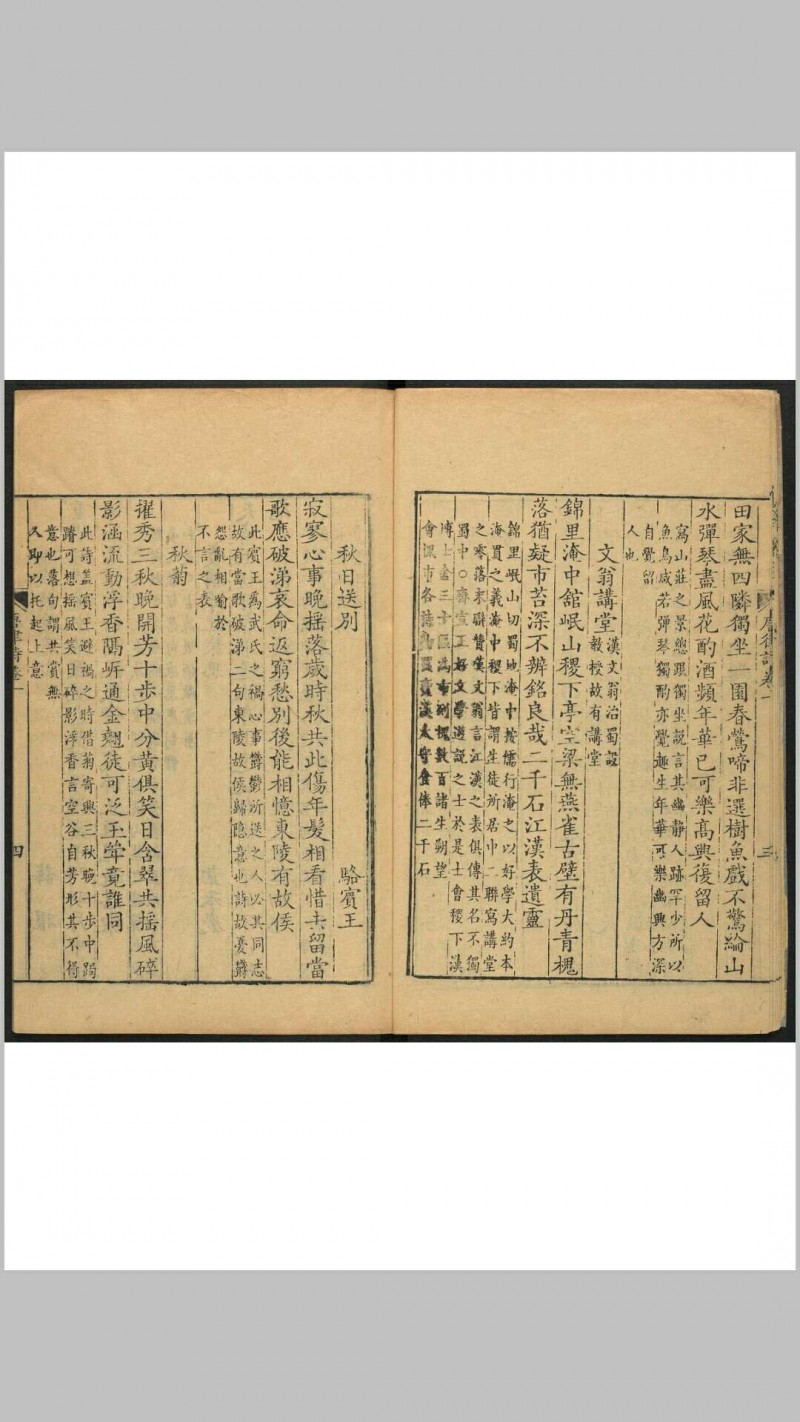 田家無四隣獨坐一園春鶯啼非選樹魚戲不驚綸山
水彈琴盡風花酌酒頻年華已可樂高興復留人
寫山莊之景戀跟獨坐說言其幽靜人跡罕少所以
魚鳥咸若彈琴獨酌亦覺趣生年華可樂幽興方深
自覺留
人也
文翁講堂
漢文翁治蜀設
教授故有講堂
錦里淹中舘岷山稷下亭空梁無燕雀古壁有丹青槐
落猶疑市苔深不辨銘良哉二千石江漢表遺靈
錦里岷山切蜀地淹中按儒行淹之以好學大約本
海貫之義淹中稷下皆謂生徒所居中二聯寫講堂
之零落末聯贊漢文翁言江漢之表俱傳其名不獨
蜀中○齊宣王好文學遊説之士於是士會稷下漢
博士舍三十區為市列槐數百諸生朔望
會市各漢太守食俸二千石
唐律詩卷一
三
秋日送別
駱賓王
寂寥心事晚揺落歲時秋共此傷年髮相看惜去留當
歌應破涕哀命返窮愁別後能相憶東陵有故侯
此賓王為武氏之禍心事欝鬱所送之人必其同志
故有當歌破涕二句東陵故侯歸隐意也詩故憂欝
怨亂相喻於
不言之表
秋菊
擢秀三秋晚開芳十歩中分黄俱笑日含翠共揺風碎
影涵流動浮香隔岍通金翹徒可泛玉斝竟誰同
此詩蓋賓王避禍之時借菊寄興三秋晚十歩中跼
蹐可想揺風笑日碎影浮香言空谷自芳形其不得
意也落句謂共賞無
人即以托起上意
唐律詩卷一
四